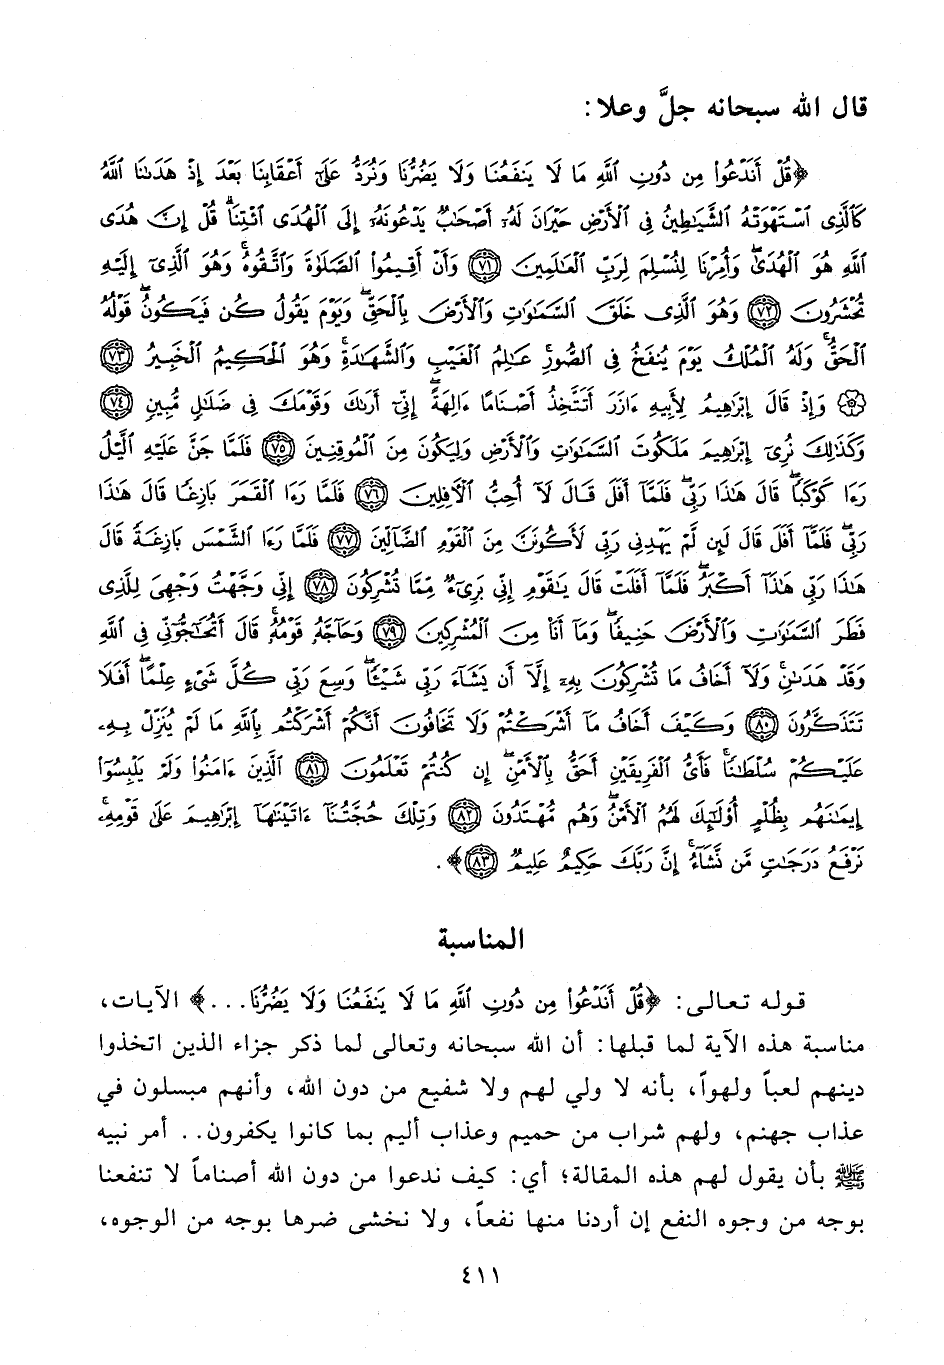 قال الله سبحانه جلَّ وعلا:
﴿قُلْ أَنَدْعُوا۟ مِن دُونِ ٱللَّهِ مَا لَا يَنفَعُنَا وَلَا يَضُرُّنَا وَنُرَدُّ عَلَىٰٓ أَعْقَابِنَا بَعْدَ إِذْ هَدَىٰنَا ٱللَّهُ
كَٱلَّذِى ٱسْتَهْوَتْهُ ٱلشَّيَـٰطِينُ فِى ٱلْأَرْضِ حَيْرَانَ لَهُۥٓ أَصْحَـٰبٌ يَدْعُونَهُۥٓ إِلَى ٱلْهُدَى ٱئْتِنَا ۗ قُلْ إِنَّ هُدَى
ٱللَّهِ هُوَ ٱلْهُدَىٰ ۖ وَأُمِرْنَا لِنُسْلِمَ لِرَبِّ ٱلْعَـٰلَمِينَ ٧١ وَأَنْ أَقِيمُوا۟ ٱلصَّلَوٰةَ وَٱتَّقُوهُ ۚ وَهُوَ ٱلَّذِىٓ إِلَيْهِ
تُحْشَرُونَ ٧٢ وَهُوَ ٱلَّذِى خَلَقَ ٱلسَّمَـٰوَٰتِ وَٱلْأَرْضَ بِٱلْحَقِّ ۖ وَيَوْمَ يَقُولُ كُن فَيَكُونُ ۚ قَوْلُهُ
ٱلْحَقُّ ۚ وَلَهُ ٱلْمُلْكُ يَوْمَ يُنفَخُ فِى ٱلصُّورِ ۚ عَـٰلِمُ ٱلْغَيْبِ وَٱلشَّهَـٰدَةِ ۚ وَهُوَ ٱلْحَكِيمُ ٱلْخَبِيرُ ٧٣
۞ وَإِذْ قَالَ إِبْرَٰهِيمُ لِأَبِيهِ ءَازَرَ أَتَتَّخِذُ أَصْنَامًا ءَالِهَةً ۖ إِنِّىٓ أَرَىٰكَ وَقَوْمَكَ فِى ضَلَـٰلٍ مُّبِينٍ ٧٤
وَكَذَٰلِكَ نُرِىٓ إِبْرَٰهِيمَ مَلَكُوتَ ٱلسَّمَـٰوَٰتِ وَٱلْأَرْضِ وَلِيَكُونَ مِنَ ٱلْمُوقِنِينَ ٧٥ فَلَمَّا جَنَّ عَلَيْهِ ٱلَّيْلُ
رَءَا كَوْكَبًا ۖ قَالَ هَـٰذَا رَبِّى ۖ فَلَمَّآ أَفَلَ قَالَ لَآ أُحِبُّ ٱلْـَٔافِلِينَ ٧٦ فَلَمَّا رَءَا ٱلْقَمَرَ بَازِغًا قَالَ هَـٰذَا
رَبِّى ۖ فَلَمَّآ أَفَلَ قَالَ لَئِن لَّمْ يَهْدِنِى رَبِّى لَأَكُونَنَّ مِنَ ٱلْقَوْمِ ٱلضَّآلِّينَ ٧٧ فَلَمَّا رَءَا ٱلشَّمْسَ بَازِغَةً قَالَ
هَـٰذَا رَبِّى هَـٰذَآ أَكْبَرُ ۖ فَلَمَّآ أَفَلَتْ قَالَ يَـٰقَوْمِ إِنِّى بَرِىٓءٌ مِّمَّا تُشْرِكُونَ ٧٨ إِنِّى وَجَّهْتُ وَجْهِىَ لِلَّذِى
فَطَرَ ٱلسَّمَـٰوَٰتِ وَٱلْأَرْضَ حَنِيفًا ۖ وَمَآ أَنَا۠ مِنَ ٱلْمُشْرِكِينَ ٧٩ وَحَآجَّهُۥ قَوْمُهُۥ ۚ قَالَ أَتُحَـٰٓجُّوٓنِّى فِى ٱللَّهِ
وَقَدْ هَدَىٰنِ ۚ وَلَآ أَخَافُ مَا تُشْرِكُونَ بِهِۦٓ إِلَّآ أَن يَشَآءَ رَبِّى شَيْـًٔا ۗ وَسِعَ رَبِّى كُلَّ شَىْءٍ عِلْمًا ۗ أَفَلَا
تَتَذَكَّرُونَ ٨٠ وَكَيْفَ أَخَافُ مَآ أَشْرَكْتُمْ وَلَا تَخَافُونَ أَنَّكُمْ أَشْرَكْتُم بِٱللَّهِ مَا لَمْ يُنَزِّلْ بِهِۦ
عَلَيْكُمْ سُلْطَـٰنًا ۚ فَأَىُّ ٱلْفَرِيقَيْنِ أَحَقُّ بِٱلْأَمْنِ ۖ إِن كُنتُمْ تَعْلَمُونَ ٨١ ٱلَّذِينَ ءَامَنُوا۟ وَلَمْ يَلْبِسُوٓا۟
إِيمَـٰنَهُم بِظُلْمٍ أُو۟لَـٰٓئِكَ لَهُمُ ٱلْأَمْنُ ۖ وَهُم مُّهْتَدُونَ ٨٢ وَتِلْكَ حُجَّتُنَآ ءَاتَيْنَـٰهَآ إِبْرَٰهِيمَ عَلَىٰ قَوْمِهِۦ ۚ
نَرْفَعُ دَرَجَـٰتٍ مَّن نَّشَآءُ ۗ إِنَّ رَبَّكَ حَكِيمٌ عَلِيمٌ ٨٣﴾.
المناسبة
قوله تعالى: ﴿قُلْ أَنَدْعُوا۟ مِن دُونِ ٱللَّهِ مَا لَا يَنفَعُنَا وَلَا يَضُرُّنَا...﴾ الآيات،
مناسبة هذه الآية لما قبلها: أن الله سبحانه وتعالى لما ذكر جزاء الذين اتخذوا
دينهم لعباً ولهواً، بأنه لا ولي لهم ولا شفيع من دون الله، وأنهم مبسلون في
عذاب جهنم، ولهم شراب من حميم وعذاب أليم بما كانوا يكفرون.. أمر نبيه
ﷺ بأن يقول لهم هذه المقالة؛ أي: كيف ندعوا من دون الله أصناماً لا تنفعنا
بوجه من وجوه النفع إن أردنا منها نفعاً، ولا نخشى ضرها بوجه من الوجوه،
٤١١